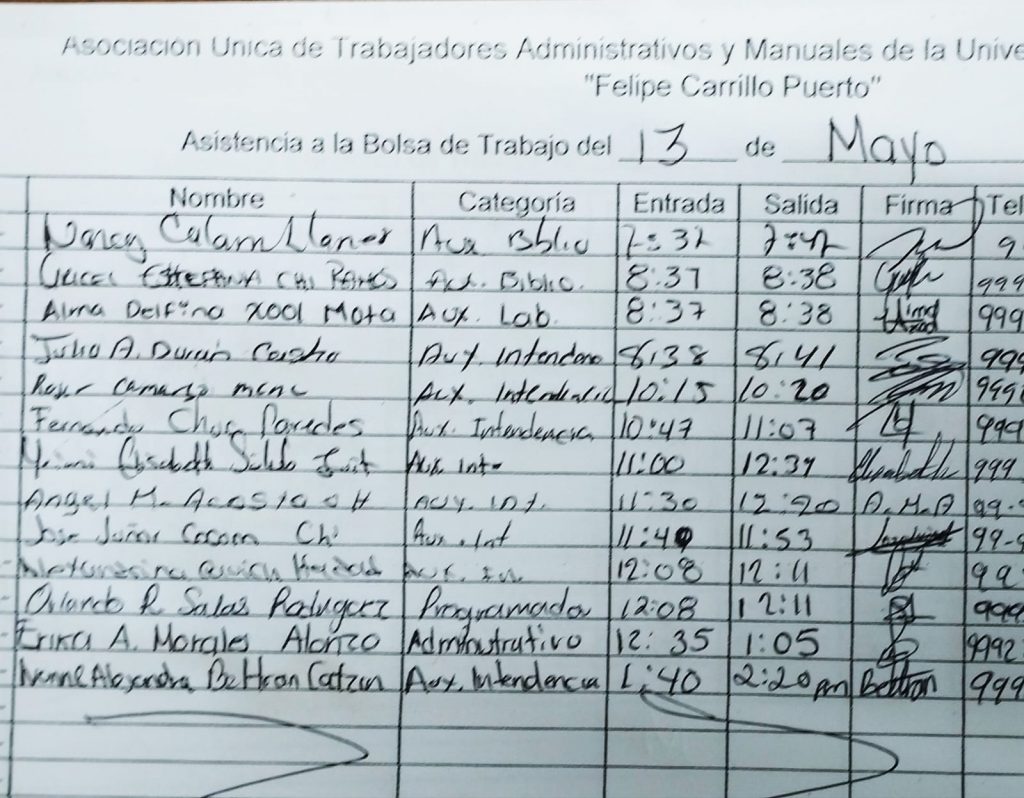 Asociación Unica de Trabajadores Administrativos y Manuales de la Unive
"Felipe Carrillo Puerto"
Asistencia a la Bolsa de Trabajo del 13 de Mayo
Nombre Categoría Entrada Salida Firma Tel
Nancy Aux Bblio 7:42 9
Aux. Biblio. 8:37 8:38 999
Alma Delfina Xool Mota Aux. Lab. 8:37 8:38 999
Julio A. Duran Castro Aux Intendenc 8:38 8:41 999
Camargo Aux. Intendencia 10:15 10:20 999
Fernando Chuc Paredes Aux. Intendencia 10:47 11:07 999
Aux Int 11:00 12:39 999
Angel M. Acosta Aux. Int. 11:30 12:20 A.M.A 99
Jose Junior Cocom Chi Aux. Int 11:40 11:53 99
Aux. In. 12:08 12:11 99
Orlando R Salas Rodriguez Programador 12:08 12:11 999
Erika A. Morales Alonzo Administrativo 12:35 1:05 9992
Ivonne Alejandra Beltran Catzin Aux. Intendencia 1:40 2:20 pm Beltran 999